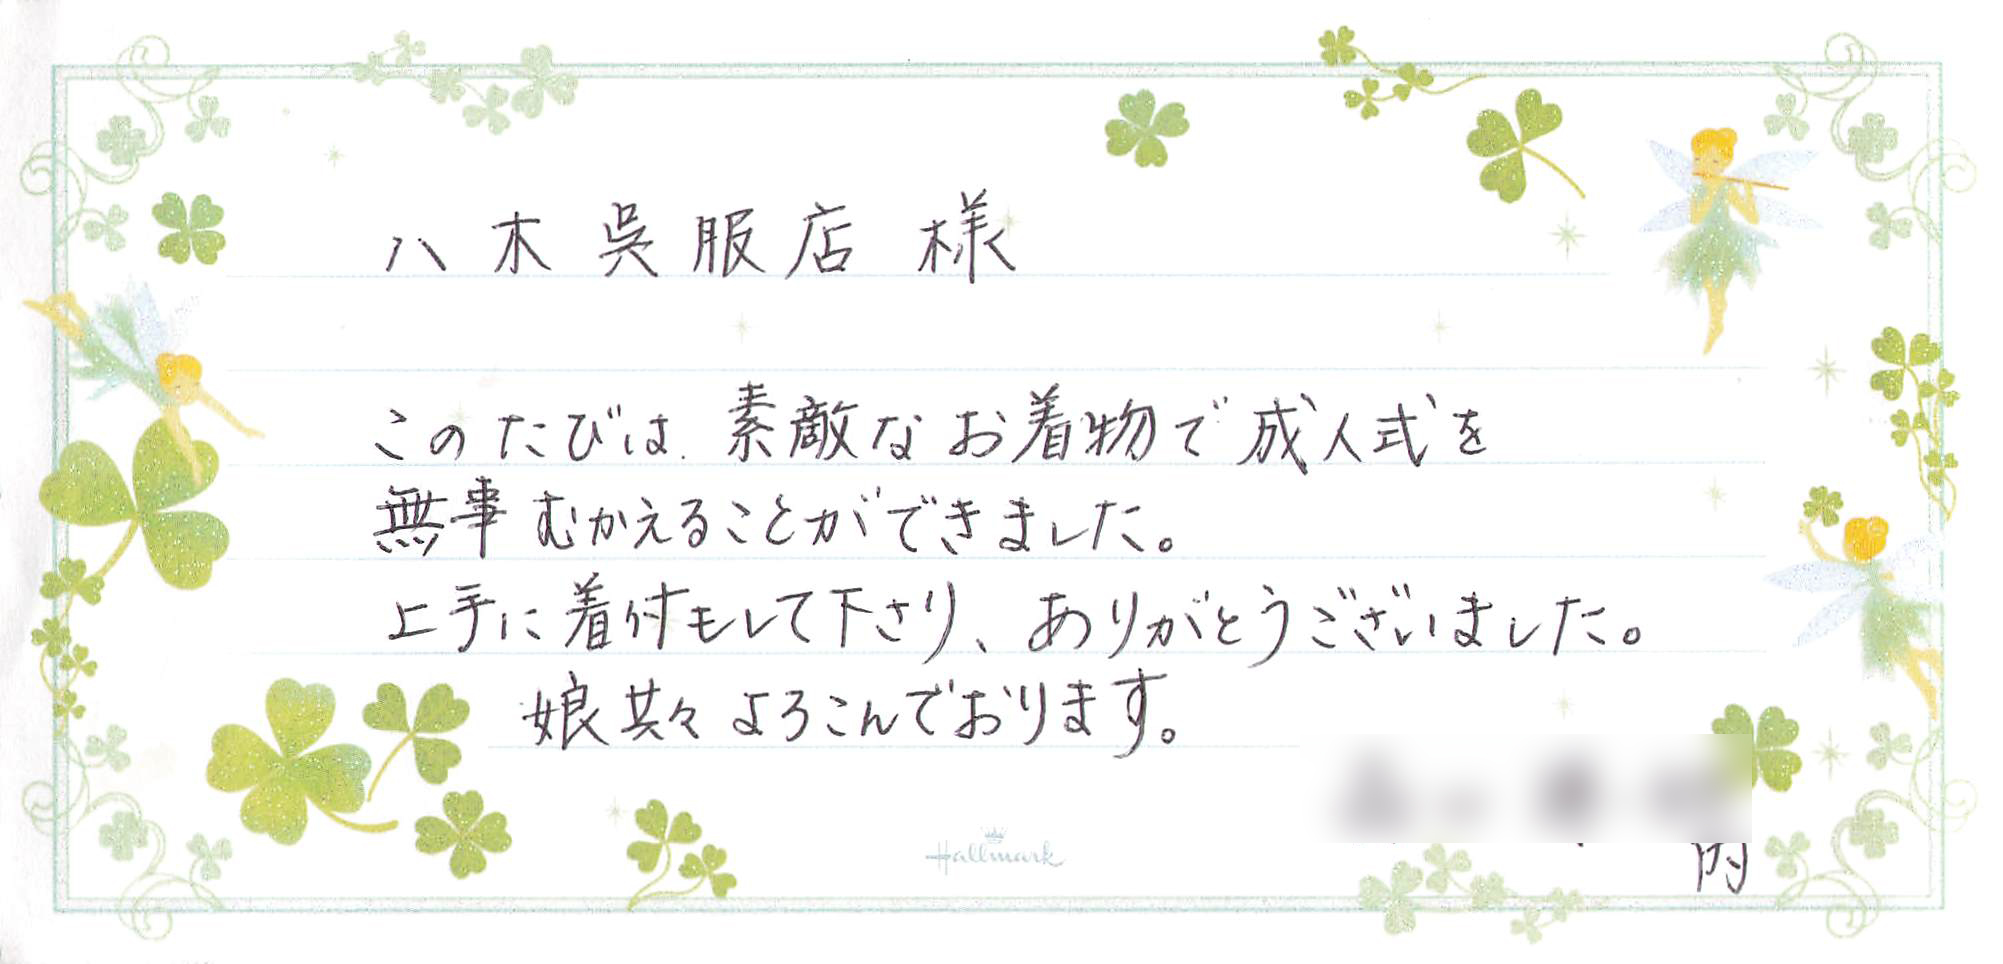 八木呉服店 様
このたびは 素敵なお着物で成人式を
無事むかえることができました。
上手に着付もして下さり、ありがとうございました。
娘共々よろこんでおります。
Hallmark
内